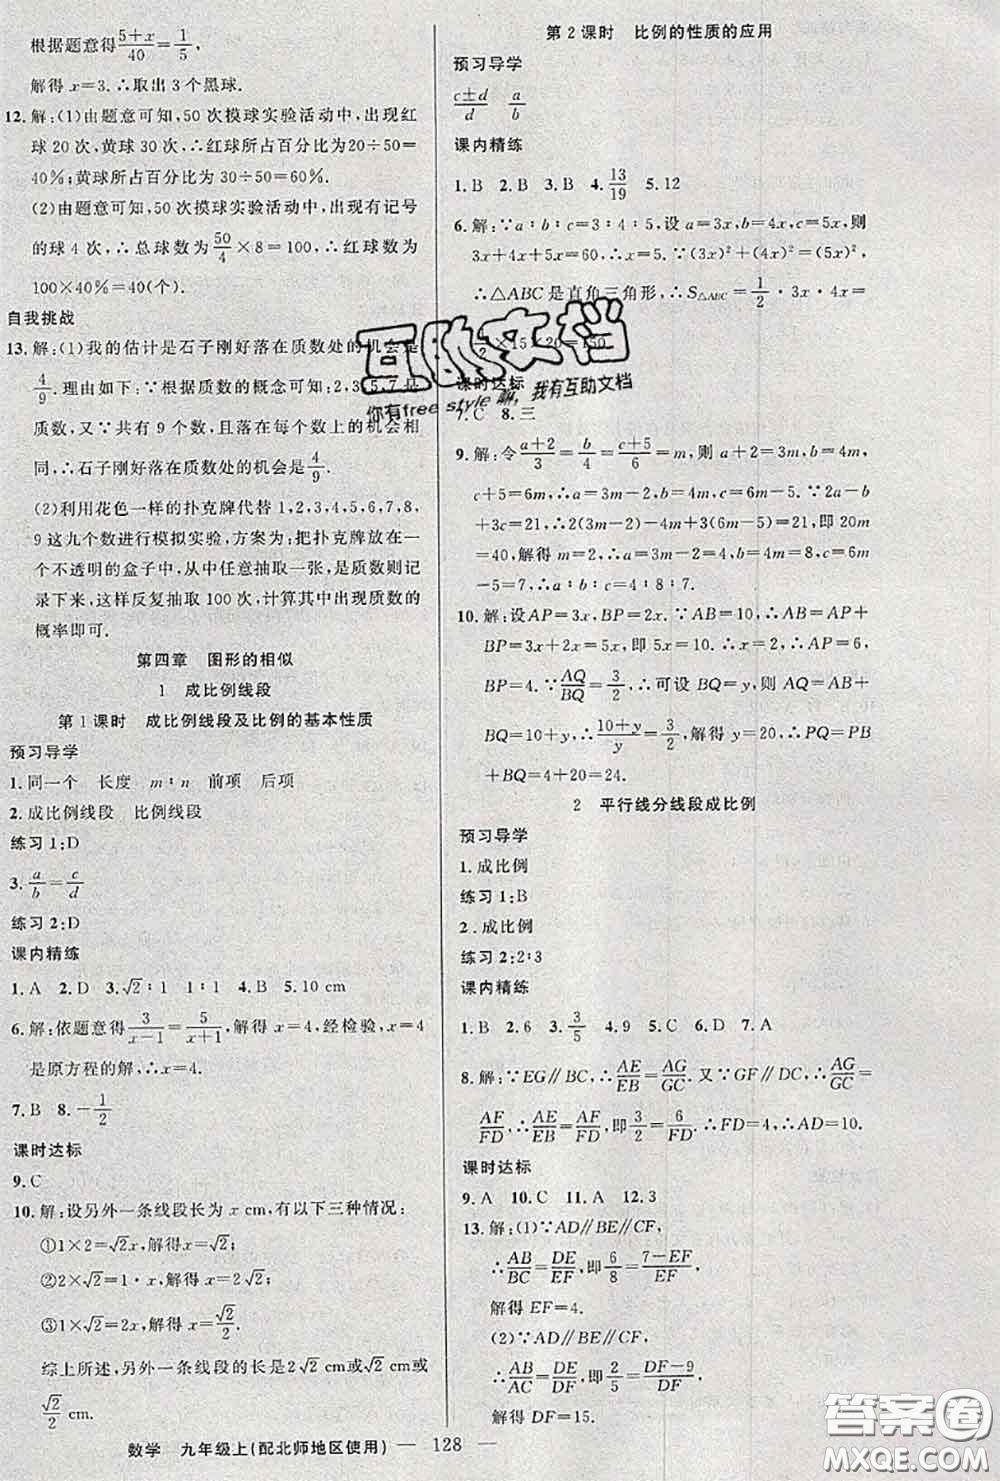 根据题意得(5+x)/40=1/5.
解得 x=3.∴取出 3 个黑球.
12.解:(1)由题意可知,50 次摸球实验活动中,出现红
球 20 次,黄球 30 次,∴红球所占百分比为 20÷50=
40%;黄球所占百分比为 30÷50=60%.
(2)由题意可知,50 次摸球实验活动中,出现有记号
的球 4 次,∴总球数为50/4×8=100,∴红球数为
100×40%=40(个).
自我挑战
13.解:(1)我的估计是石子刚好落在质数处的机会是
4/9.理由如下:∵根据质数的概念可知:2,3,5,7是
质数,又∵共有 9 个数,且落在每个数上的机会相
同,∴石子刚好落在质数处的机会是4/9.
(2)利用花色一样的扑克牌代替 1,2,3,4,5,6,7,8,
9 这九个数进行模拟实验,方案为:把扑克牌放在一
个不透明的盒子中,从中任意抽取一张,是质数则记
录下来,这样反复抽取 100 次,计算其中出现质数的
概率即可.
第四章 图形的相似
1 成比例线段
第 1 课时 成比例线段及比例的基本性质
预习导学
1.同一个 长度 m∶n 前项 后项
2.成比例线段 比例线段
练习 1:D
3.a/b=c/d
练习 2:D
课内精练
1.A 2.D 3.√2∶1 1∶1 4.B 5.10 cm
6.解:依题意得3/(x-1)=5/(x+1),解得 x=4,经检验,x=4
是原方程的解,∴x=4.
7.B 8.-1/2
课时达标
9.C
10.解:设另外一条线段长为 x cm,有以下三种情况:
①1×2=√2x,解得 x=√2;
②2×√2=1·x,解得 x=2√2;
③1×√2=2x,解得 x=√2/2.
综上所述,另外一条线段的长是2√2 cm或√2 cm或
√2/2 cm.
第 2 课时 比例的性质的应用
预习导学
(c±d)/d a/b
课内精练
1.B 2.B 3.B 4.13/19 5.12
6.解:∵a∶b∶c=3∶4∶5,设 a=3x,b=4x,c=5x,则
3x+4x+5x=60,∴x=5,∵(3x)²+(4x)²=(5x)²,
∴△ABC 是直角三角形,∴S△ABC=1/2·3x·4x=
1/2×15×20=150.
课时达标
7.C 8.三
9.解:令(a+2)/3=b/4=(c+5)/6=m,则 a+2=3m,b=4m,
c+5=6m,∴a=3m-2,b=4m,c=6m-5,∵2a-b
+3c=21,∴2(3m-2)-4m+3(6m-5)=21,即 20m
=40,解得 m=2,∴a=3m-2=4,b=4m=8,c=6m
-5=7,∴a∶b∶c=4∶8∶7.
10.解:设 AP=3x,BP=2x.∵AB=10,∴AB=AP+
BP=3x+2x=5x,即5x=10,∴x=2,∴AP=6,
BP=4.∵AQ/BQ=3/2,∴可设 BQ=y,则 AQ=AB+
BQ=10+y,∴(10+y)/y=3/2,解得 y=20,∴PQ=PB
+BQ=4+20=24.
2 平行线分线段成比例
预习导学
1.成比例
练习 1:B
2.成比例
练习 2:2∶3
课内精练
1.B 2.6 3.3/5 4.9 5.C 6.D 7.A
8.解:∵EG∥BC,∴AE/EB=AG/GC.又∵GF∥DC,∴AG/GC=
AF/FD,∴AE/EB=AF/FD,即3/2=6/FD,∴FD=4,∴AD=10.
课时达标
9.A 10.C 11.A 12.3
13.解:(1)∵AD∥BE∥CF,
∴AB/BC=DE/EF,即6/8=(7-EF)/EF,
解得 EF=4.
(2)∵AD∥BE∥CF,
∴AB/AC=DE/DF,即2/5=(DF-9)/DF,
解得 DF=15.
数学 九年级上(配北师地区使用) — 128 —
互助文档
你有free style 嘛,我有互助文档
答案圈
MXQE.COM